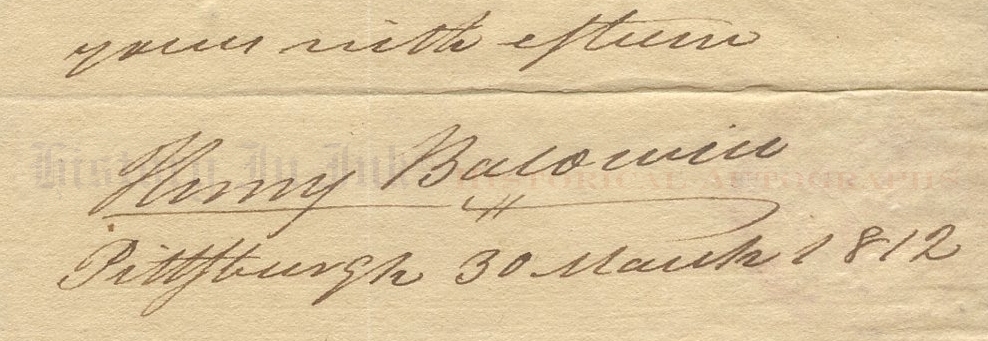 yours with esteem
History In Ink HISTORICAL AUTOGRAPHS
Henry Baldwin
Pittsburgh 30 March 1812